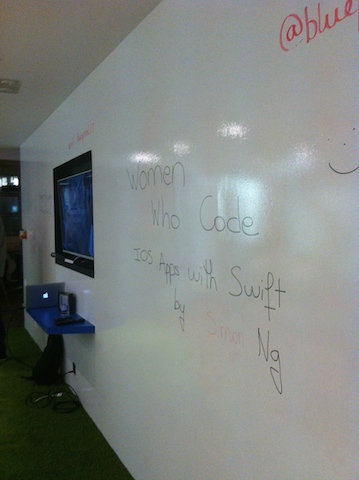 @blue
Women
Who Code
IOS Apps with Swift
by Simon Ng